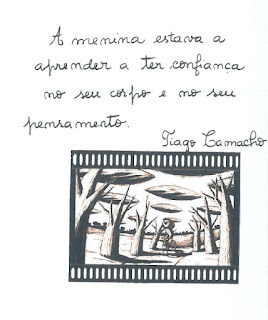 A menina estava a
aprender a ter confiança
no seu corpo e no seu
pensamento.
Tiago Camacho